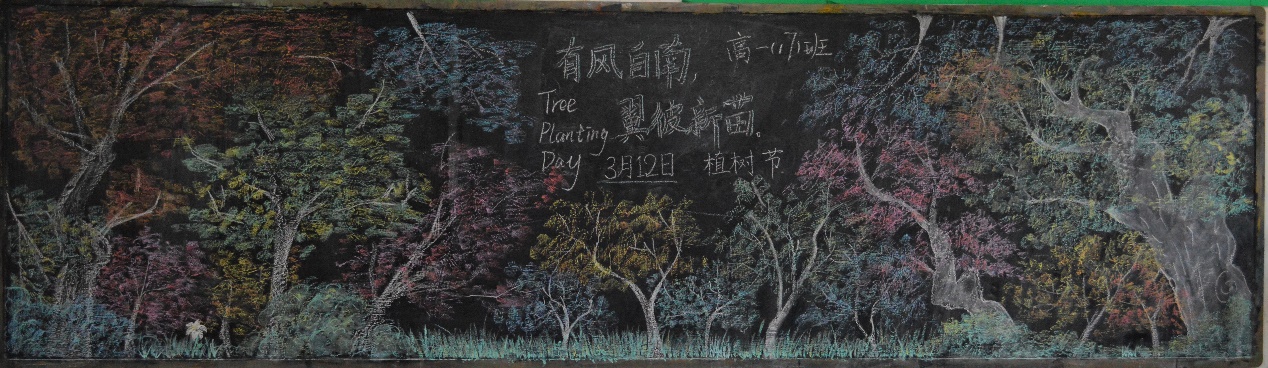 有风自南,
高一(17)班
翼彼新苗。
Tree
Planting
Day
3月12日 植树节